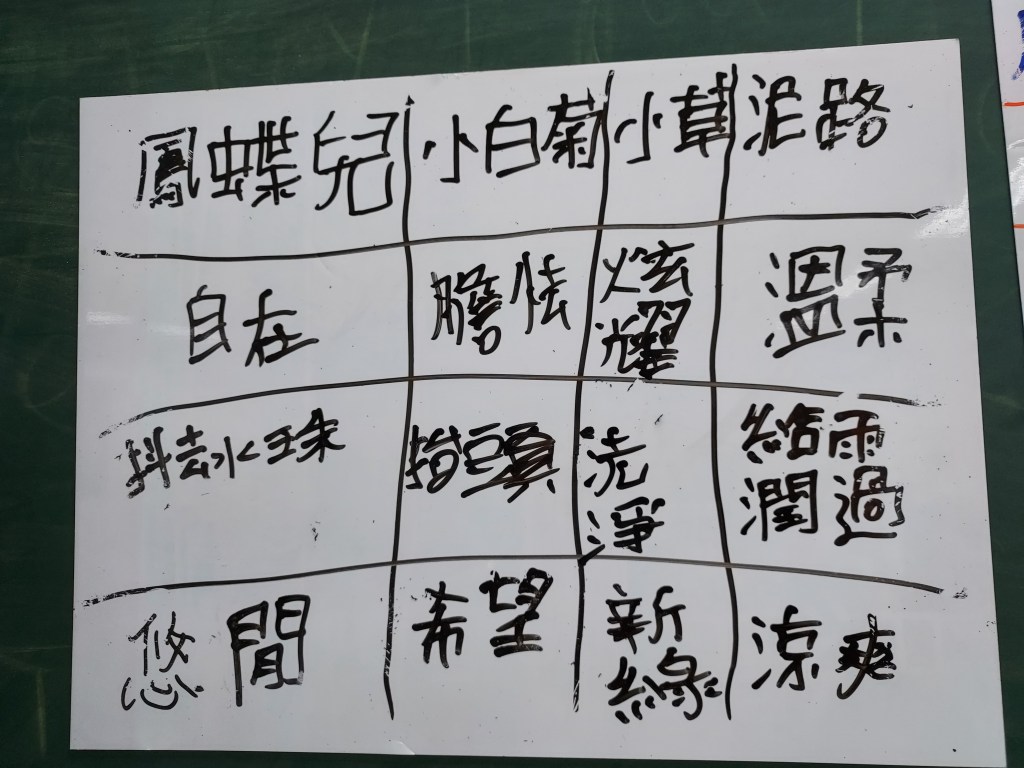 鳳蝶兒 小白菊 小草 泥路
自在 膽怯 炫耀 溫柔
抖去水珠 抬頭 洗淨 給雨潤過
悠閒 希望 新綠 涼爽